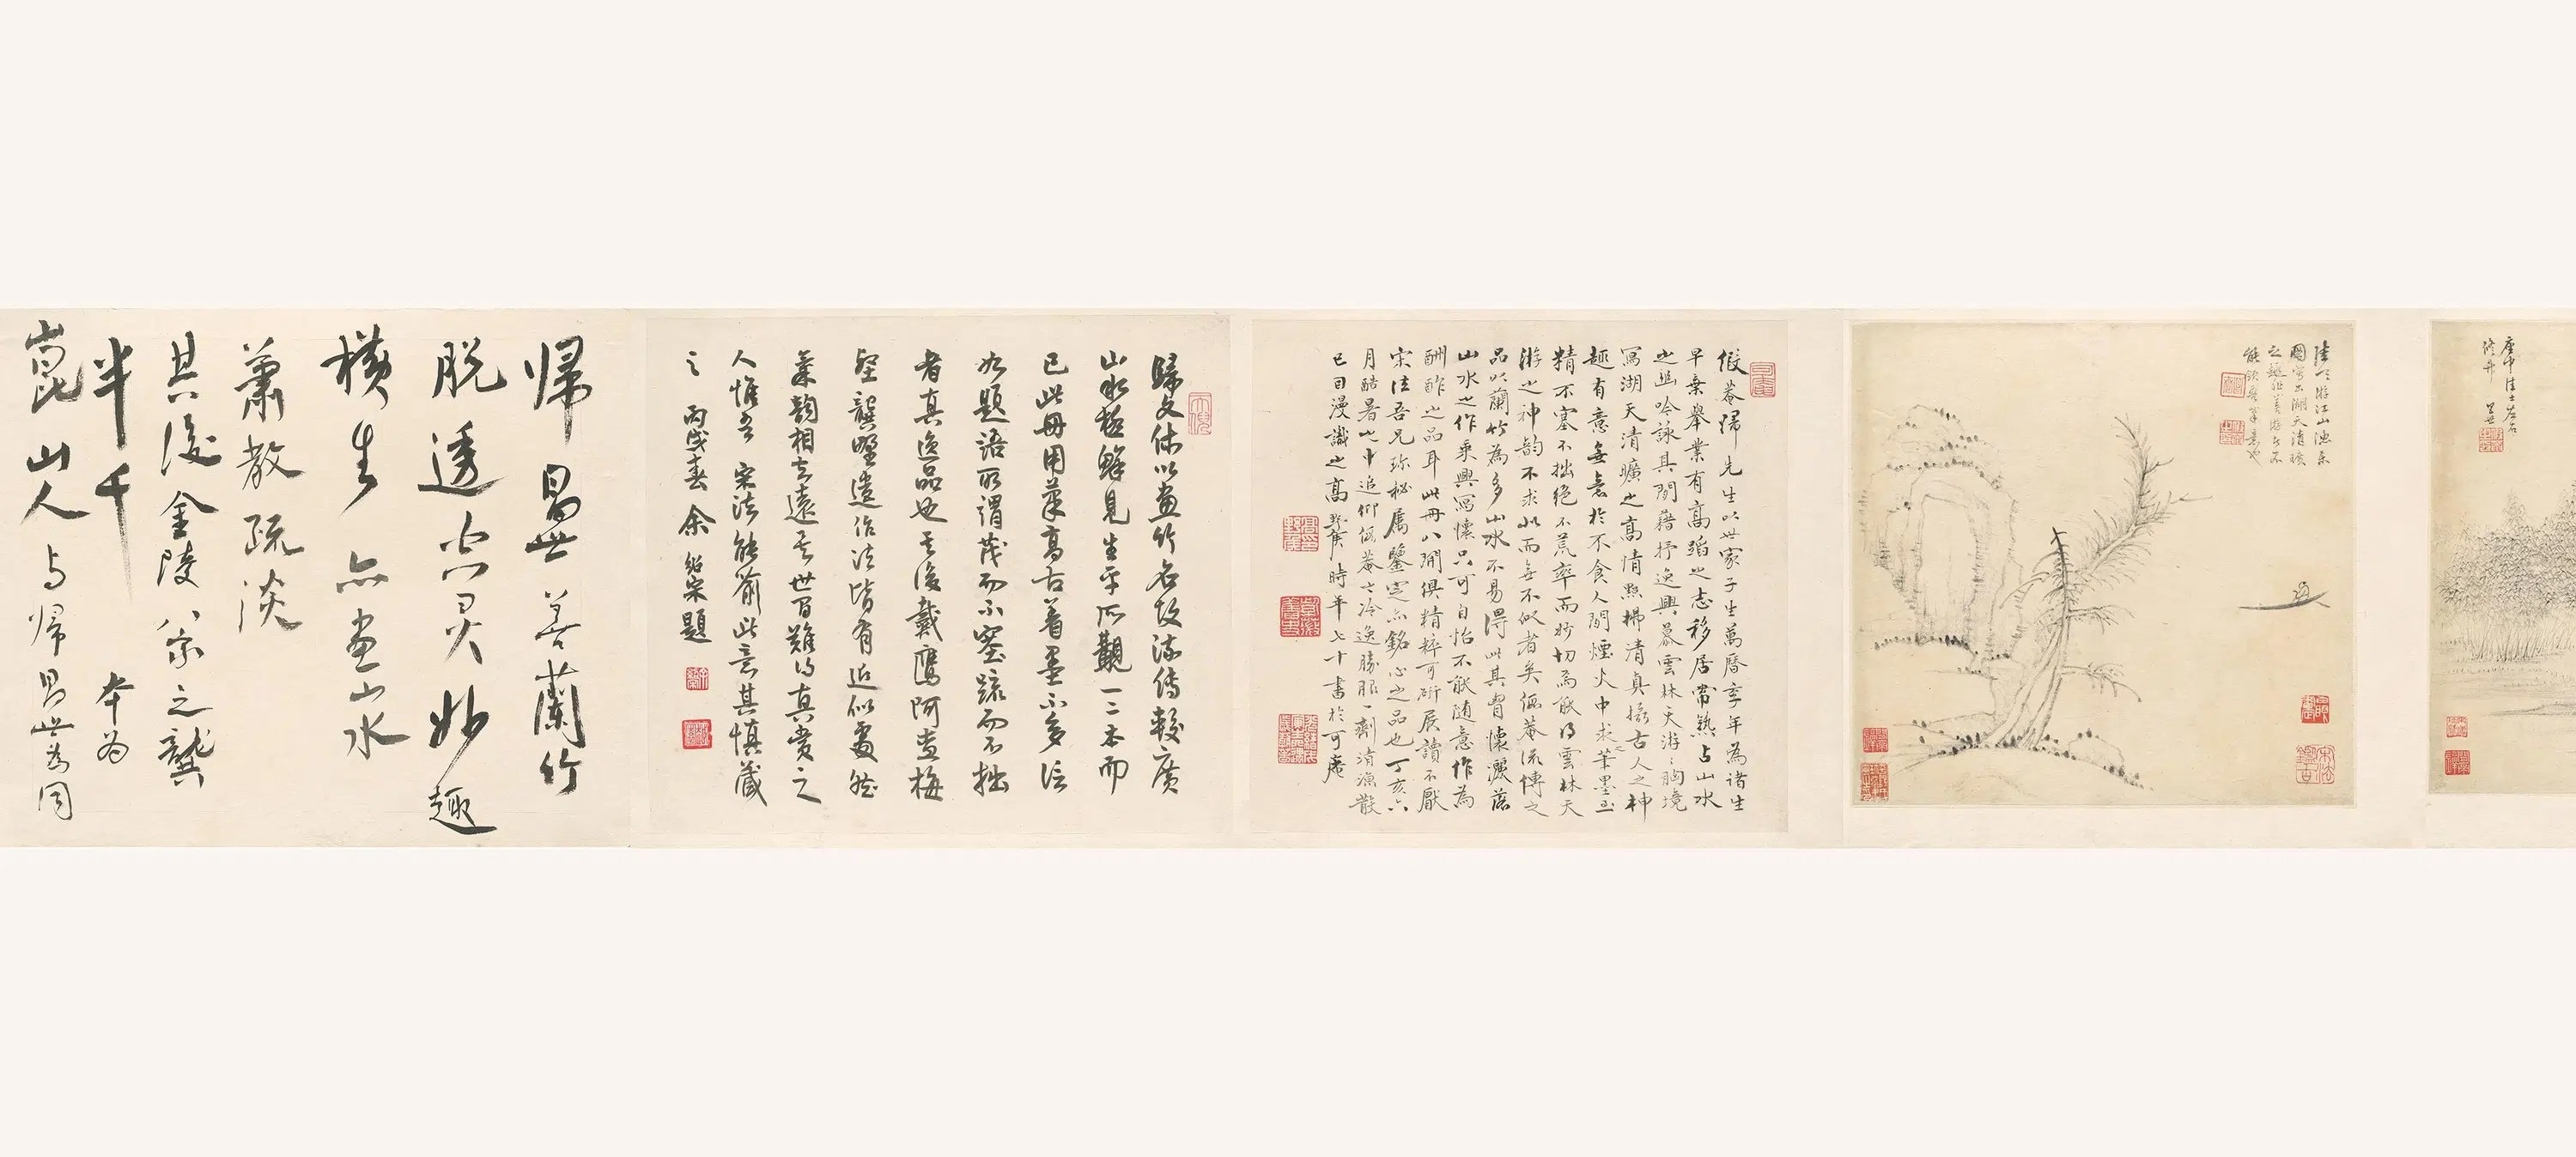 庚申佳士

陸天游江山漁樂
圖寫出湖天清曠
之趣

假菴歸先生以世家子生萬曆季年為諸生
早棄舉業有高蹈之志移居常熟占山水
之幽吟詠其間藉抒逸興慕雲林天游胸境
寫湖天清曠之高情點拂清真攝古人之神
趣有意無意於不食人間煙火中求筆墨至
精不塞不拙絕不荒率而妙切為能得雲林天
游之神韵不求似而無不似者矣假菴流傳之
品以蘭竹為多山水不易得此其胷懷灑落
山水之作乘興寫懷只可自怡不能隨意作為
酬酢之品耳此冊八開俱精粹可斫展讀不厭
宋法吾兄珍秘屬鑒定亦銘心之品也丁亥六
月酷暑中追仰假菴之冷逸勝服一劑清涼散
也日漫識之高野侯時年七十書於可庵

歸文休以畫竹名故流傳較廣
山水極鮮見生平所觀一二本而
已此冊用筆高古着墨不多誠
如題語所謂茂而不塞疏而不拙
者真逸品也其後戴鷹阿查梅
壑龔野遺作法皆有近似處然
筆韵相去遠甚世間難得真賞之
人惟吾宋法能喻此意其慎藏
之 丙戌春余紹宋題

歸昌世善蘭竹
脫透空靈妙趣
橫生亦畫山水
蕭散疏淡
其後金陵八家之龔
半千本為
崑山人与歸昌世為同